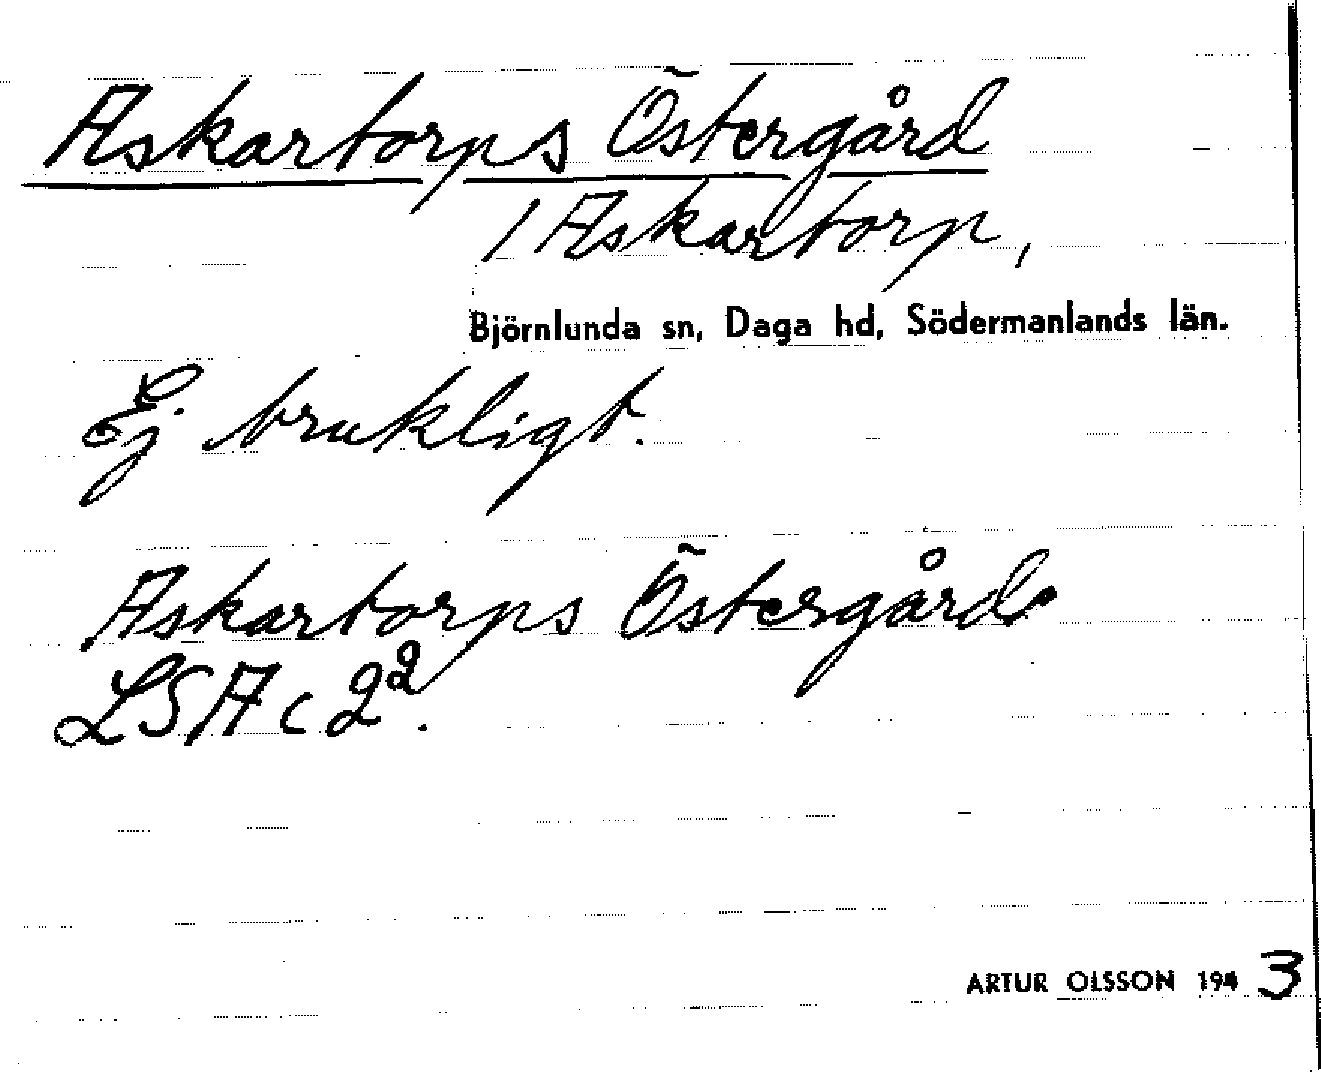 Askartorps Östergård
/ Askartorp,
Björnlunda sn, Daga hd, Södermanlands län.
Ej brukligt.
Askartorps Östergård
LSA c 2².
ARTUR OLSSON 1943